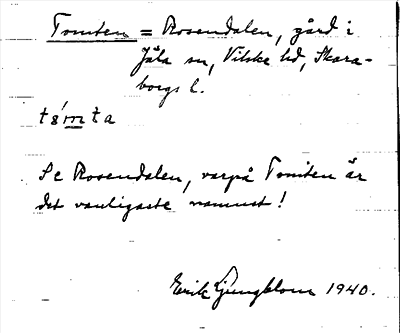 Tomten = Rosendalen, gård i
Jäla sn, Vilske hd, Skara-
borgs l.
tømta
Se Rosendalen, varpå Tomten är
det vanligaste namnet!
Erik Ljungblom 1940.